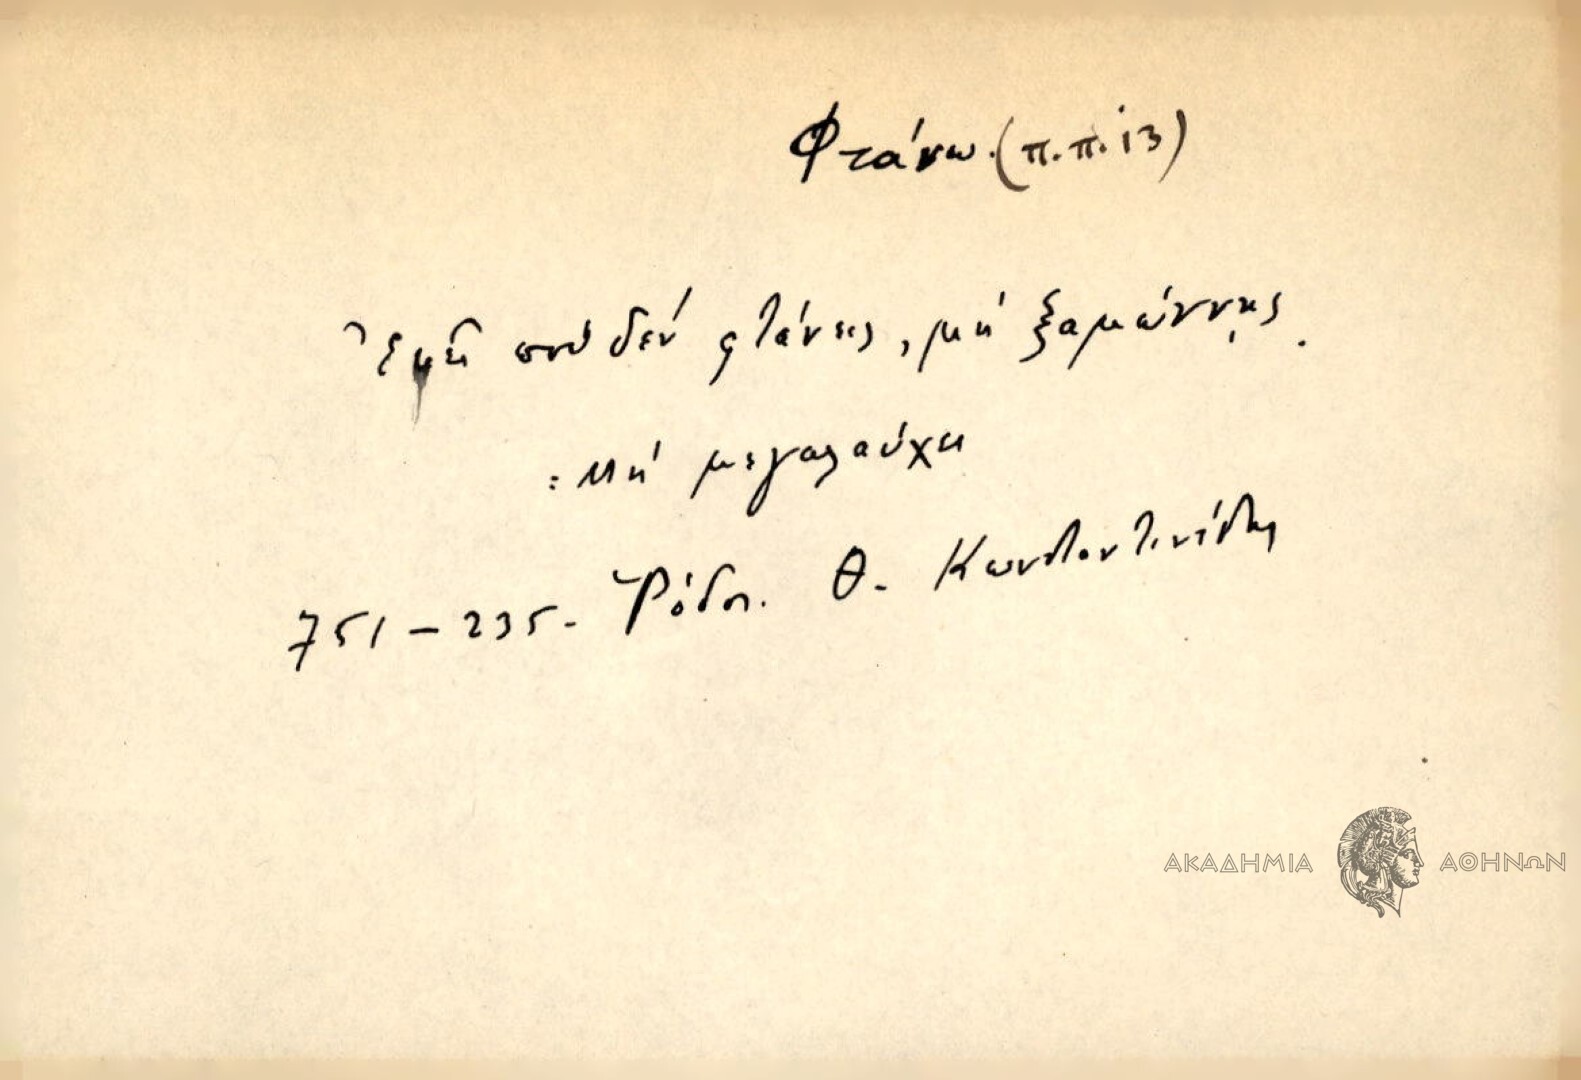 Φτάνω. (π.π. 13)
Ἐκεῖ ποὺ δέν φτάνεις, μή ξαμώννῃς.
: Μή μεγαλαύχει
751 – 235. Ῥόδος. Θ. Κωνσταντινίδης
ΑΚΑΔΗΜΙΑ ΑΘΗΝΩΝ